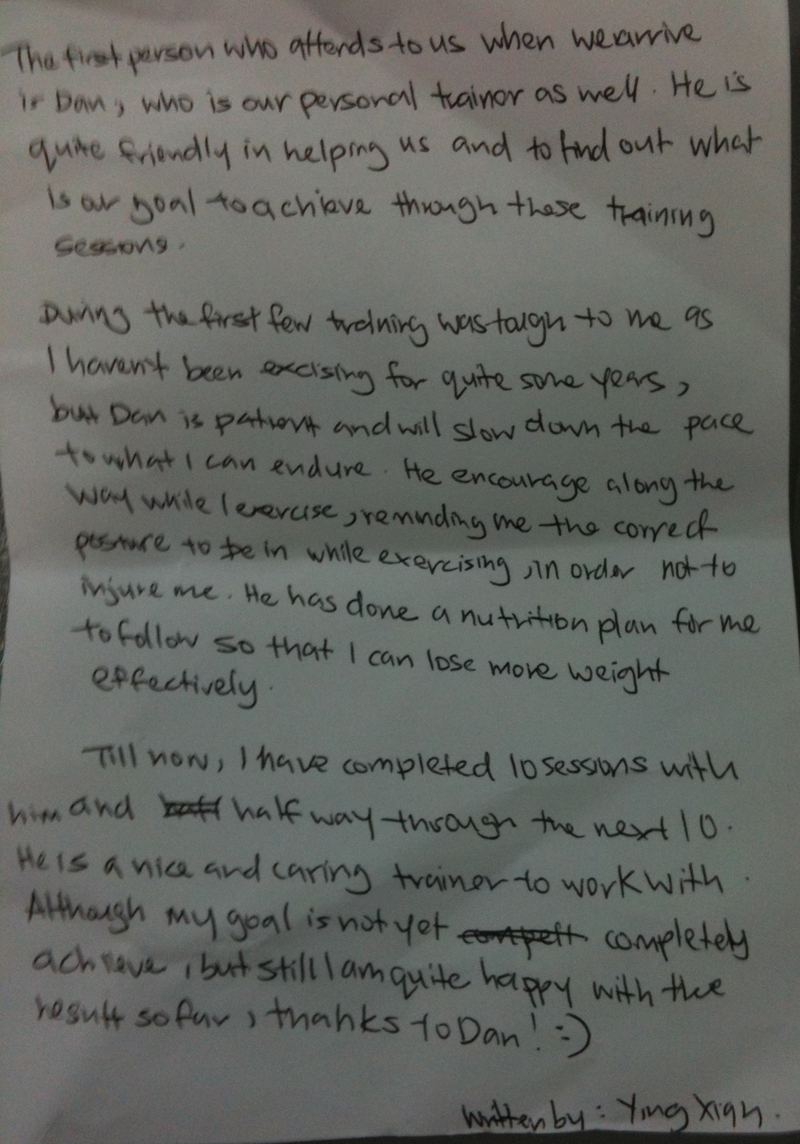 The first person who attends to us when we arrive
is Dan, who is our personal trainor as well. He is
quite friendly in helping us and to find out what
is our goal to achieve through these training
sessions.
During the first few training was tough to me as
I haven't been excising for quite some years,
but Dan is patient and will slow down the pace
to what I can endure. He encourage along the
way while I exercise, reminding me the correct
posture to be in while exercising, in order not to
injure me. He has done a nutrition plan for me
to follow so that I can lose more weight
effectively.
Till now, I have completed 10 sessions with
him and half way through the next 10.
He is a nice and caring trainer to work with.
Although my goal is not yet completely
achieve, but still I am quite happy with the
result so far, thanks to Dan! :-)
Written by: Ying Xian.